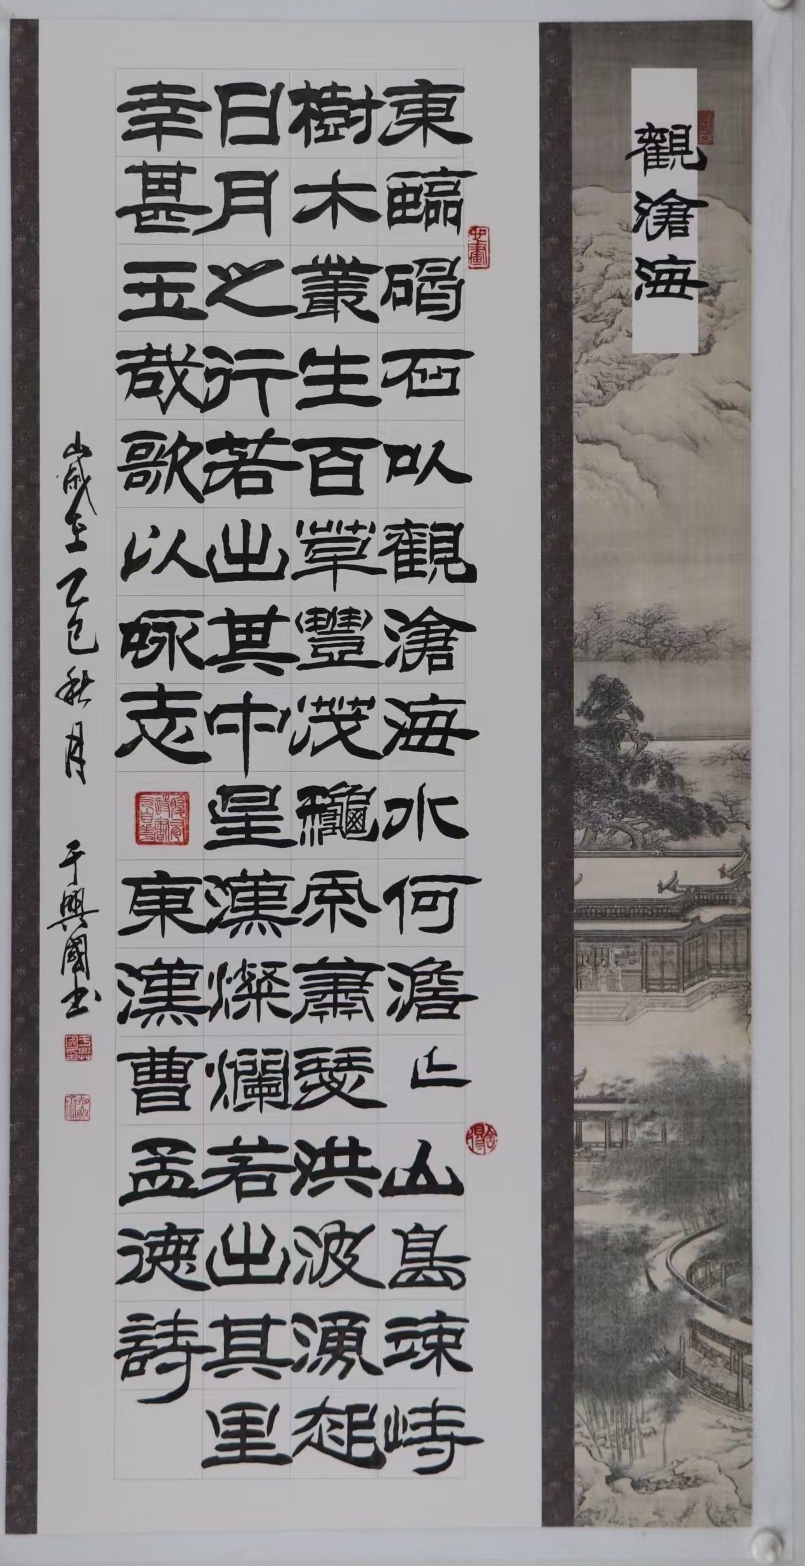 觀滄海
東臨碣石以觀滄海水何澹山島竦峙
樹木叢生百草豐茂龝風蕭瑟洪波湧起
日月之行若出其中星漢燦爛若出其里
幸甚至哉歌以咏志 東漢曹孟德詩
歲至乙巳秋月 于興國书
如畫